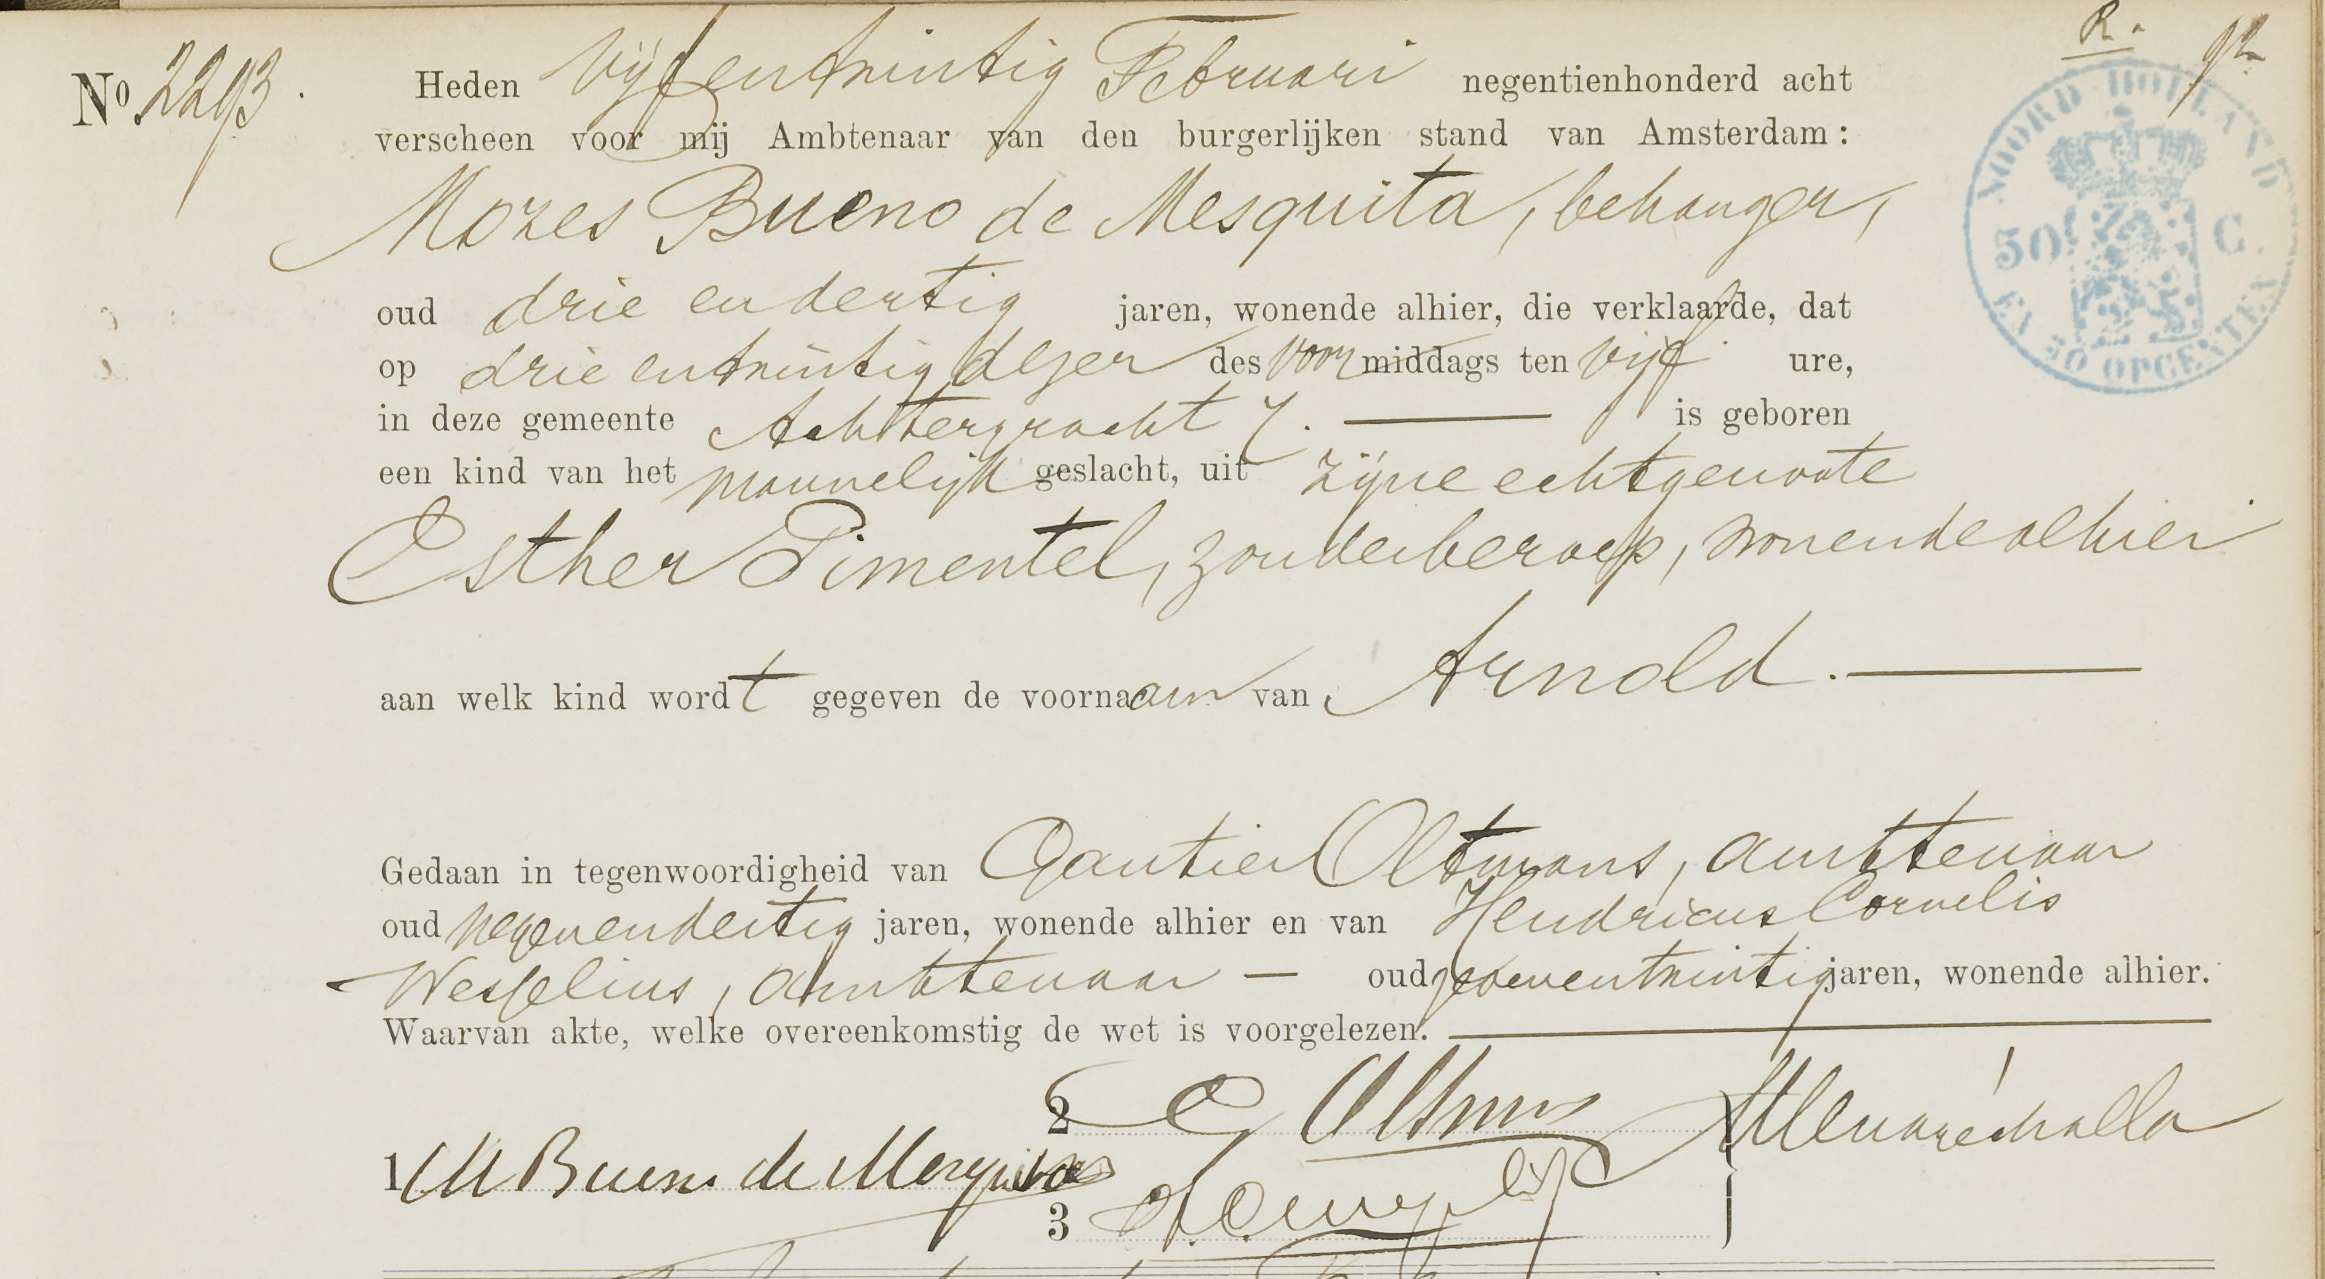 R.
No. 2293. Heden vijf en twintig Februari negentienhonderd acht
verscheen voor mij Ambtenaar van den burgerlijken stand van Amsterdam:
Mozes Bueno de Mesquita, behanger,
oud drie en dertig jaren, wonende alhier, die verklaarde, dat
op drie en twintig dezer des voormiddags ten vijf ure,
in deze gemeente Achtergracht 7. is geboren
een kind van het mannelijk geslacht, uit zijne echtgenoote
Esther Pimentel, zonder beroep, wonende alhier
aan welk kind wordt gegeven de voornaam van Arnold.
Gedaan in tegenwoordigheid van Gautier Oltmans, ambtenaar
oud negenendertig jaren, wonende alhier en van Hendricus Cornelis
Wesselius, ambtenaar – oud zevenentwintig jaren, wonende alhier.
Waarvan akte, welke overeenkomstig de wet is voorgelezen.
2 G Oltmans
1 M Bueno de Mesquita
3
NOORD-HOLLAND
50 C.
EN 50 OPCENTEN